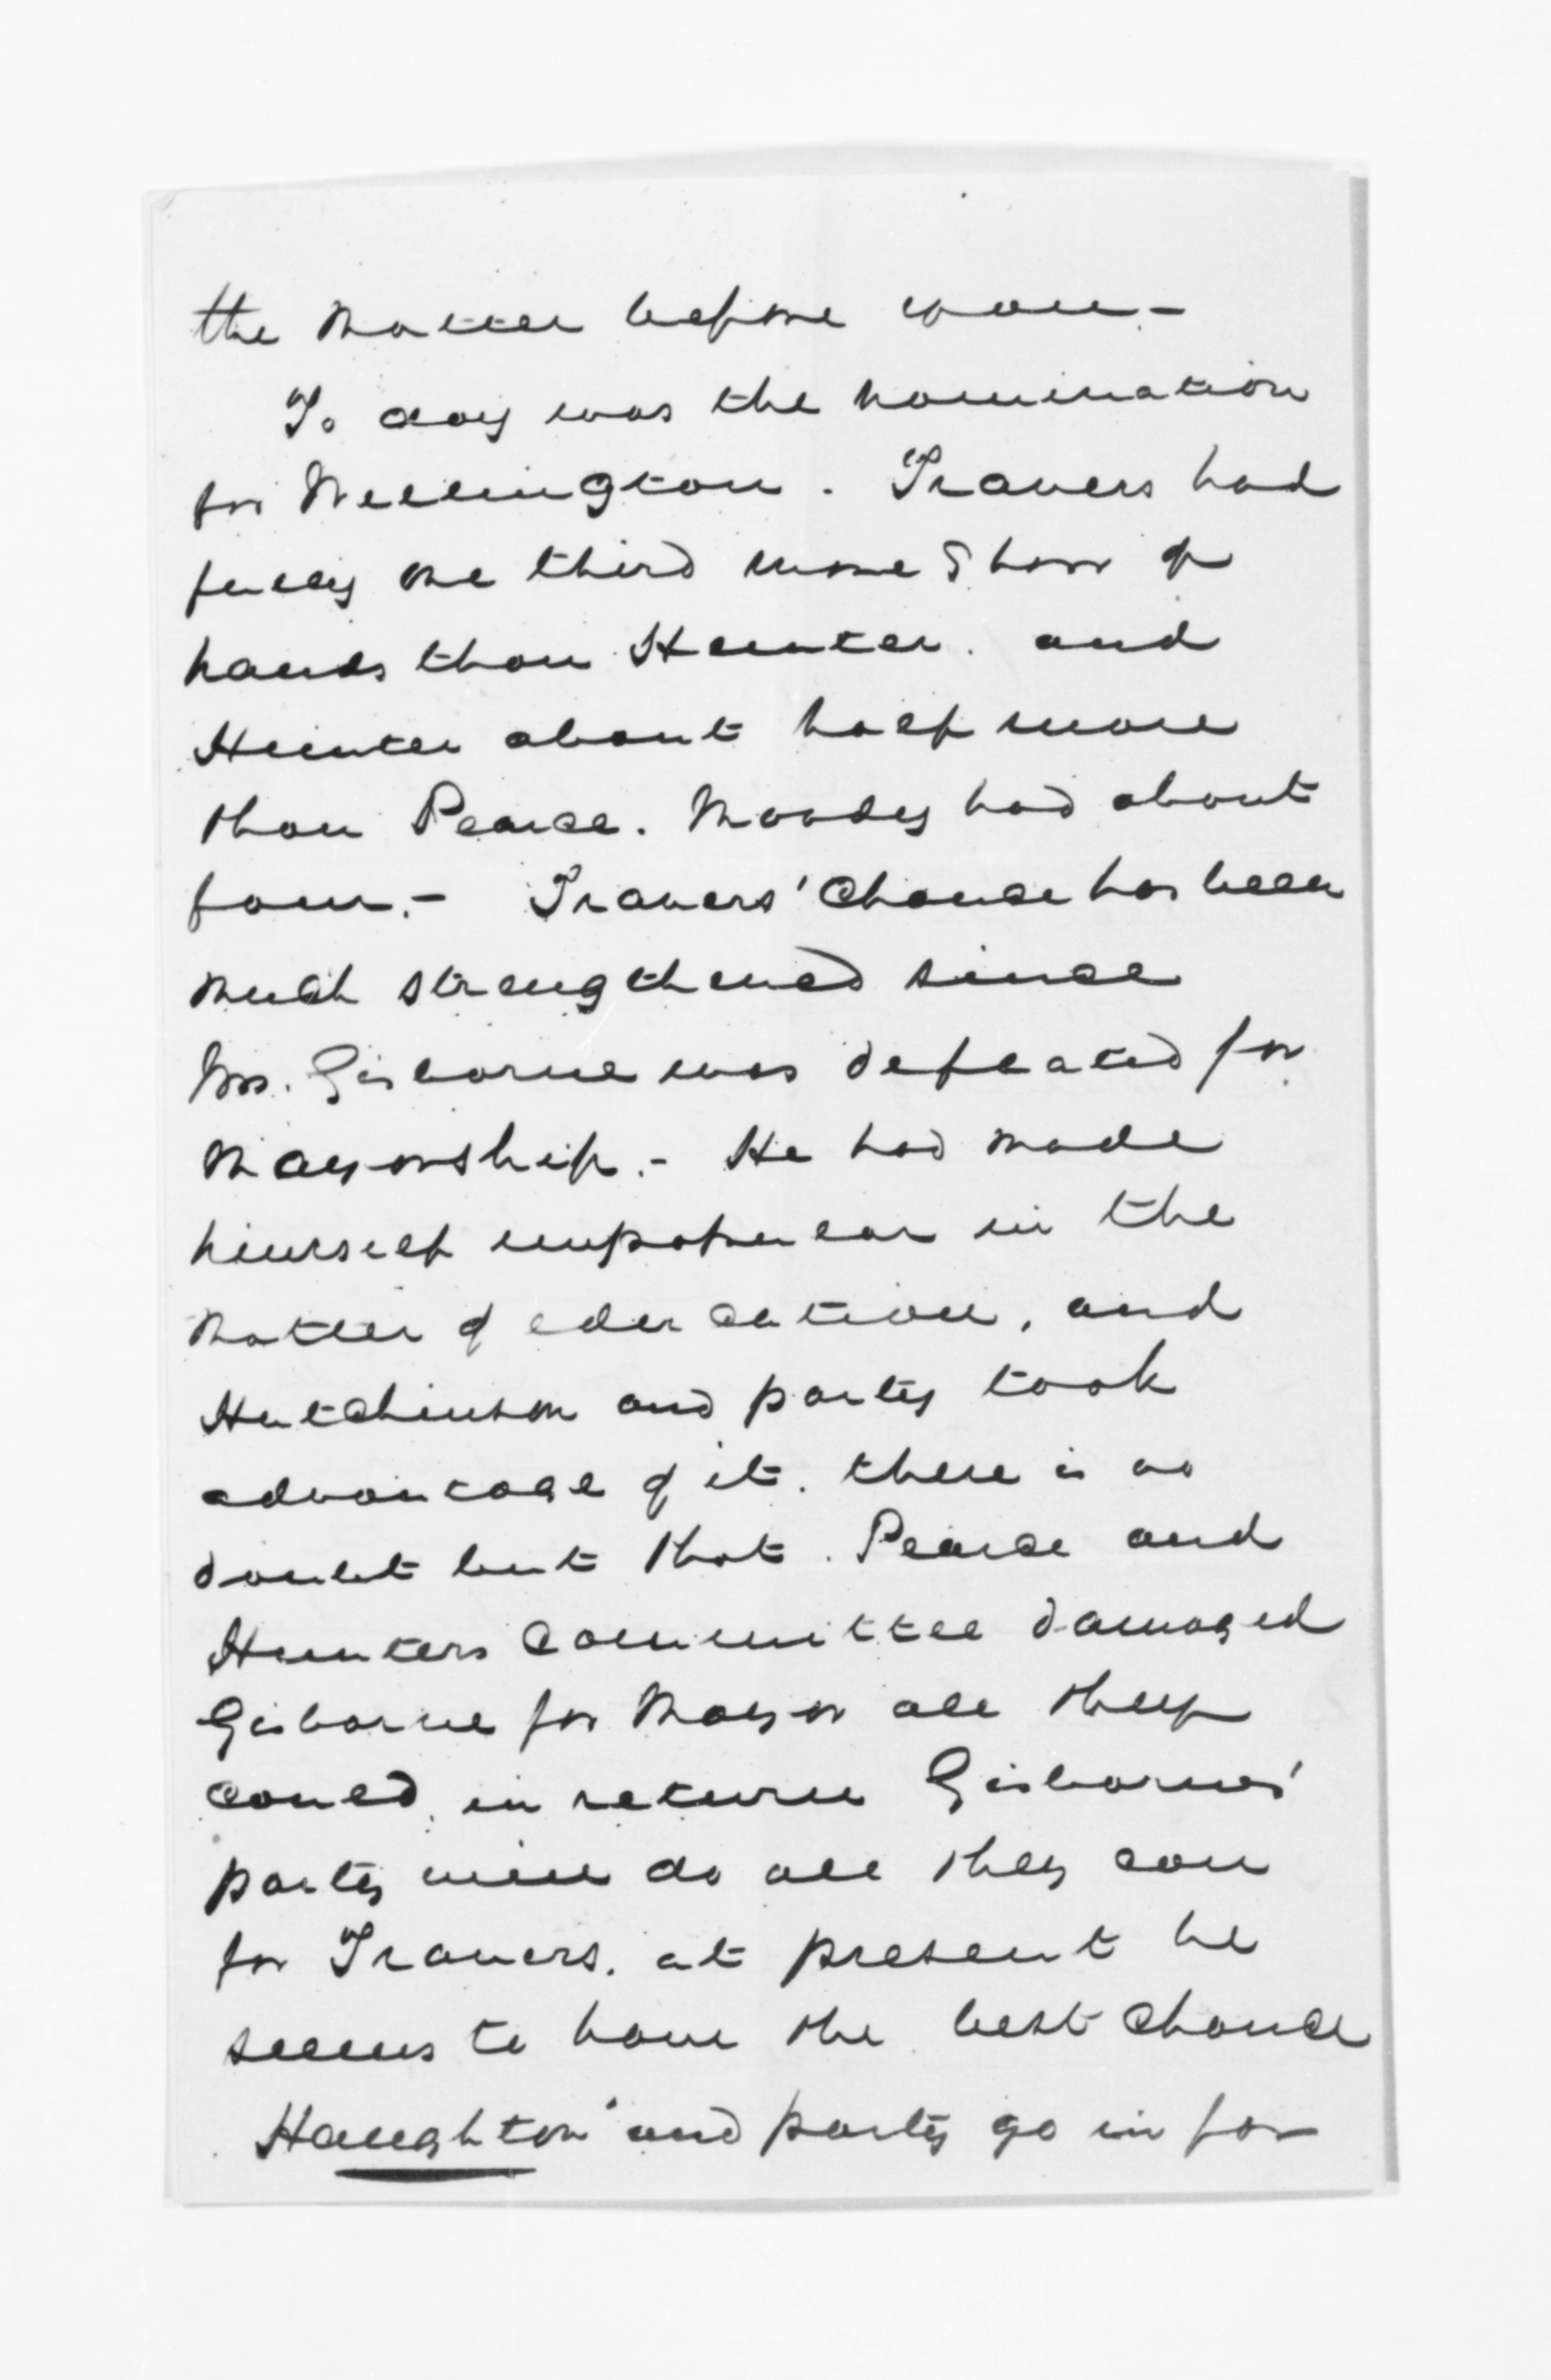 the matter before you -
To day was the nomination
for Wellington. Travers had
fully one third more Show of
hands than Hunter. and
Hunter about half more
than Pearce. Moody had about
four. - Travers' Chance has been
much strengthened since
Mr. Gisborne was defeated for
Mayorship. - He had made
himself unpopular in the
matter of education, and
Hutchinson and party took
advantage of it. there is no
doubt but that. Pearce and
Hunters Committee damaged
Gisborne for Mayor all they
could, in return Gisbornes'
party will do all they can
for Travers. at present he
seems to have the best chance
Haughton and party go in for